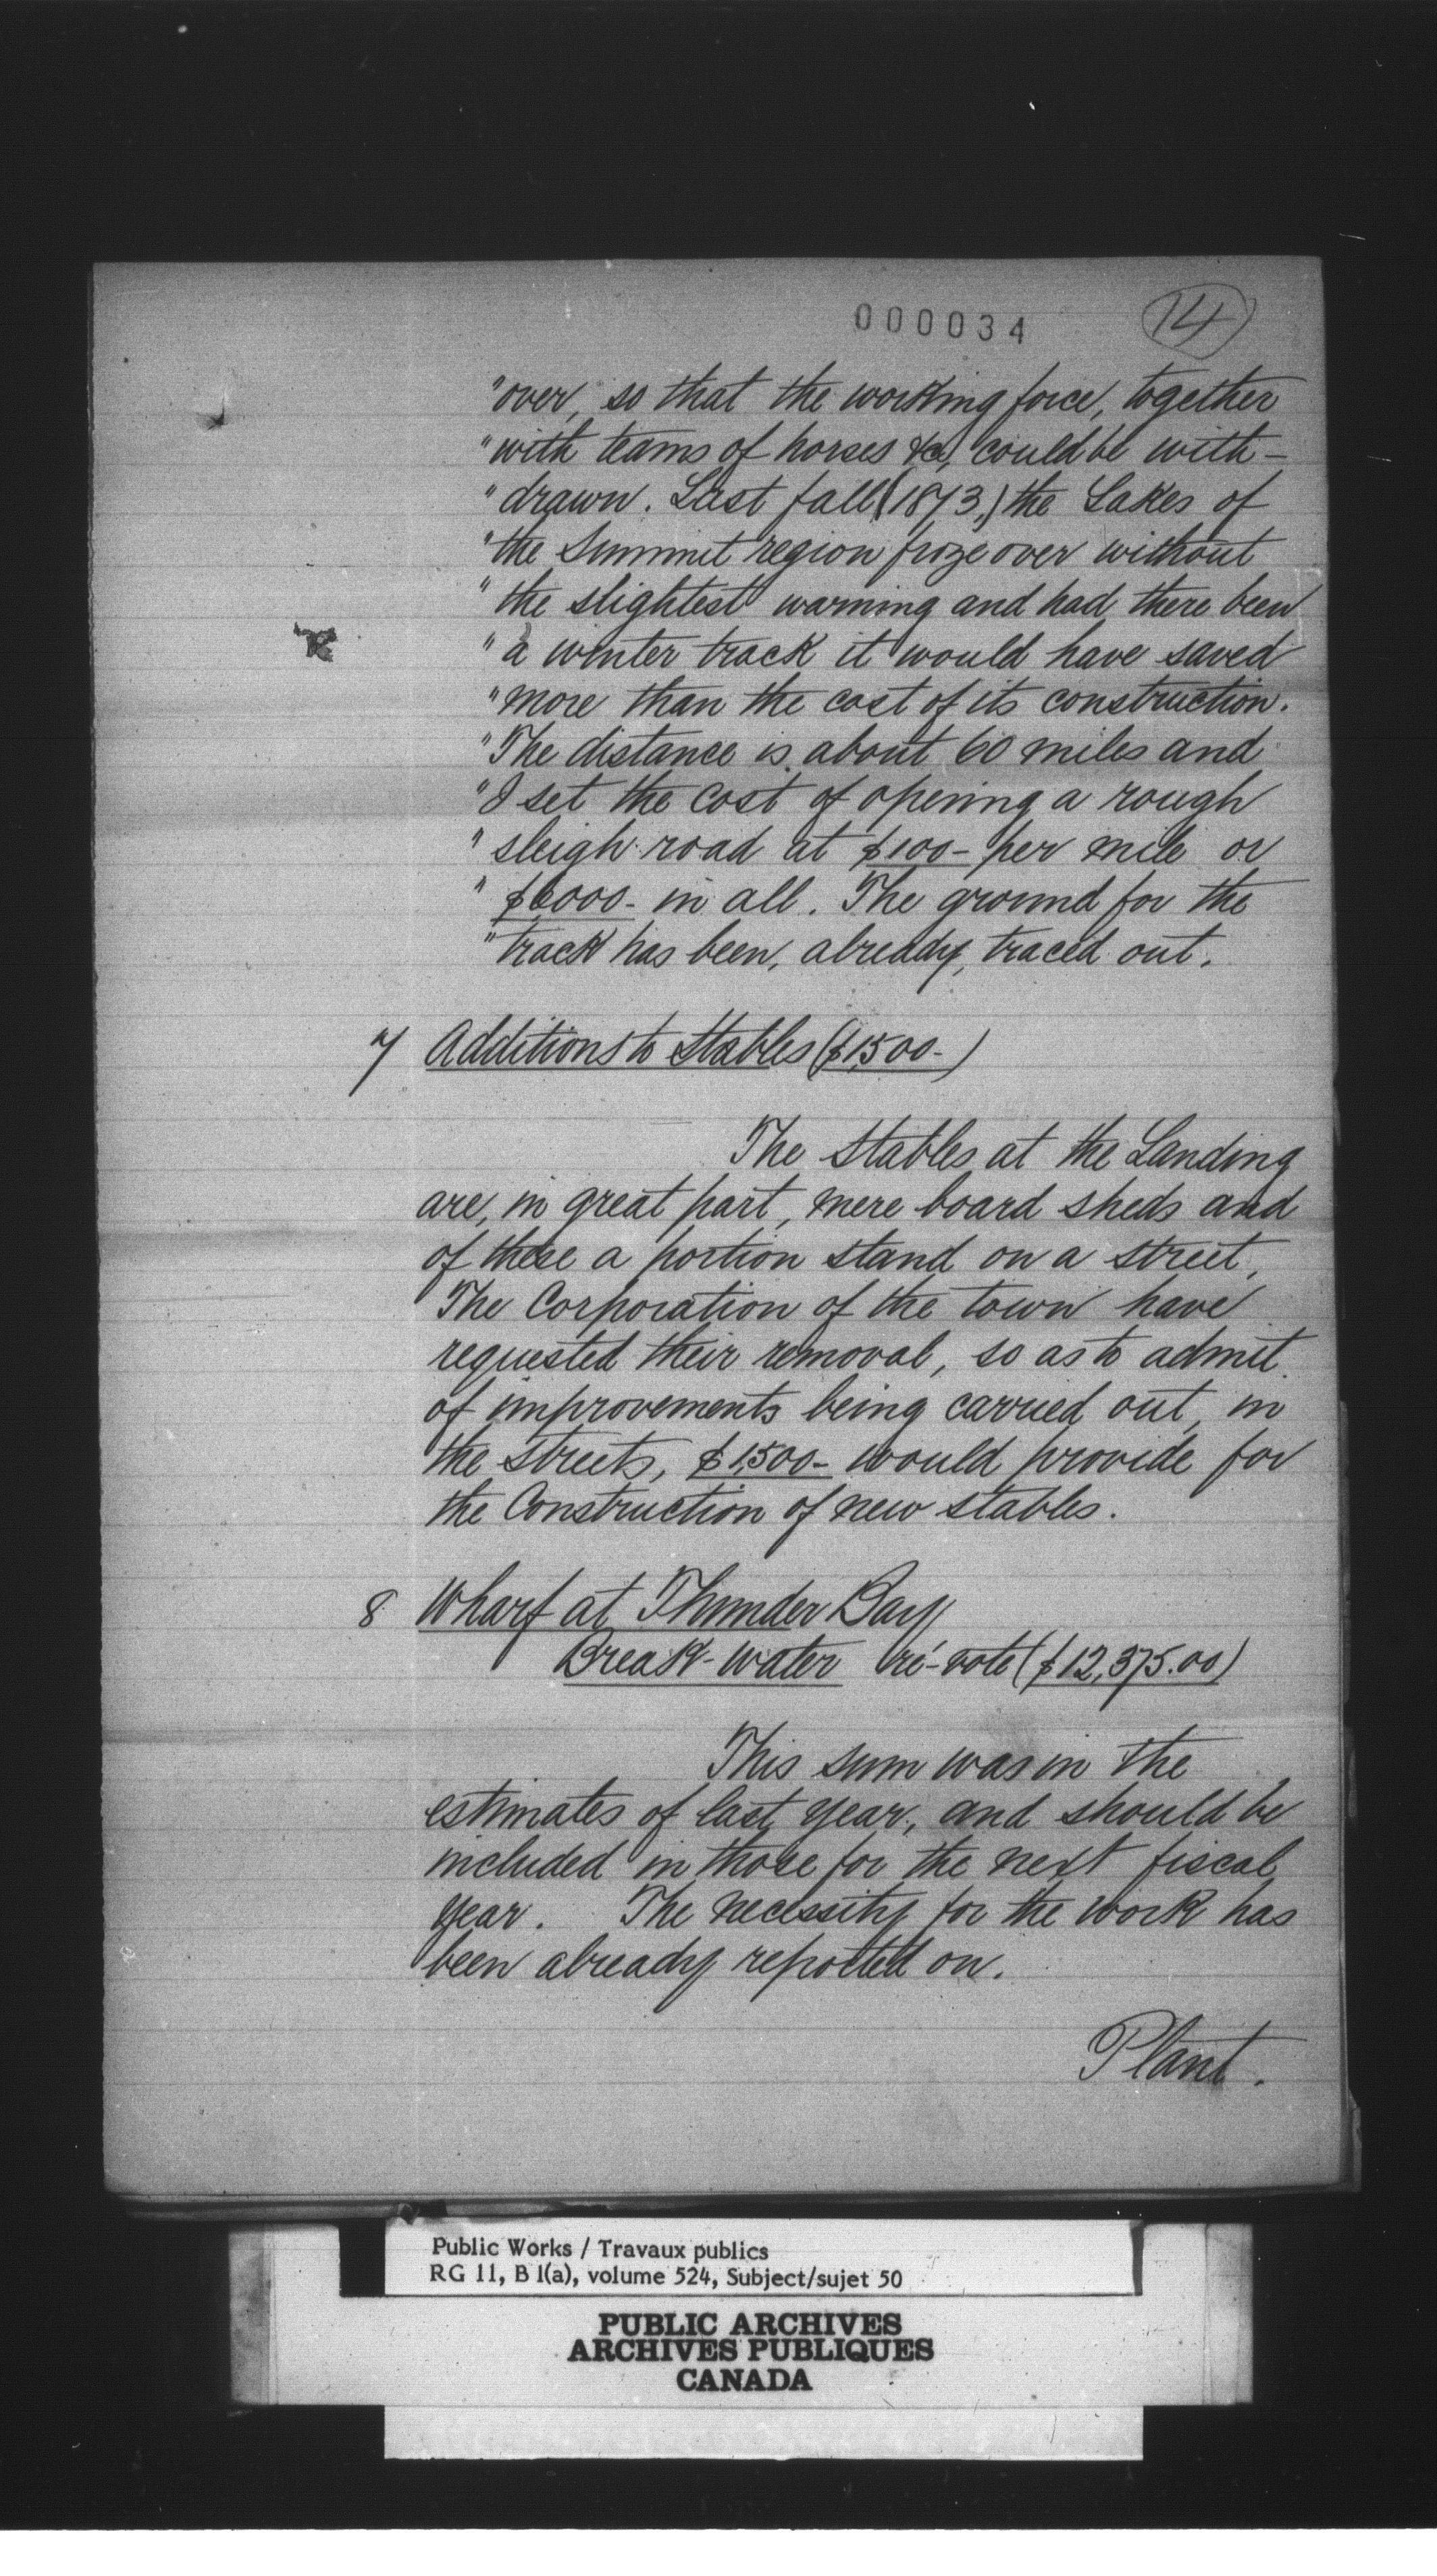 000034
14
"over, so that the working force, together
"with teams of horses &c, could be with-
"drawn. Last fall (1873,) the Lakes of
"the Summit region froze over without
"the slightest warning and had there been
"a winter track it would have saved
"more than the cost of its construction.
"The distance is about 60 miles and
"I set the cost of opening a rough
"sleigh road at $100- per mile or
"$6000- in all. The ground for the
"track has been, already, traced out.
7 Additions to Stables ($1,500-)
The Stables at the Landing
are, in great part, mere board sheds and
of these a portion stand on a street,
The Corporation of the town have
requested their removal, so as to admit
of improvements being carried out, in
the streets, $1,500- would provide for
the Construction of new stables.
8 Wharf at Thunder Bay
Break-water re-vote ($12,375.00)
This sum was in the
estimates of last year, and should be
included in those for the next fiscal
year. The necessity for the work has
been already reported on.
Plant.
Public Works / Travaux publics
RG 11, B 1(a), volume 524, Subject/sujet 50
PUBLIC ARCHIVES
ARCHIVES PUBLIQUES
CANADA